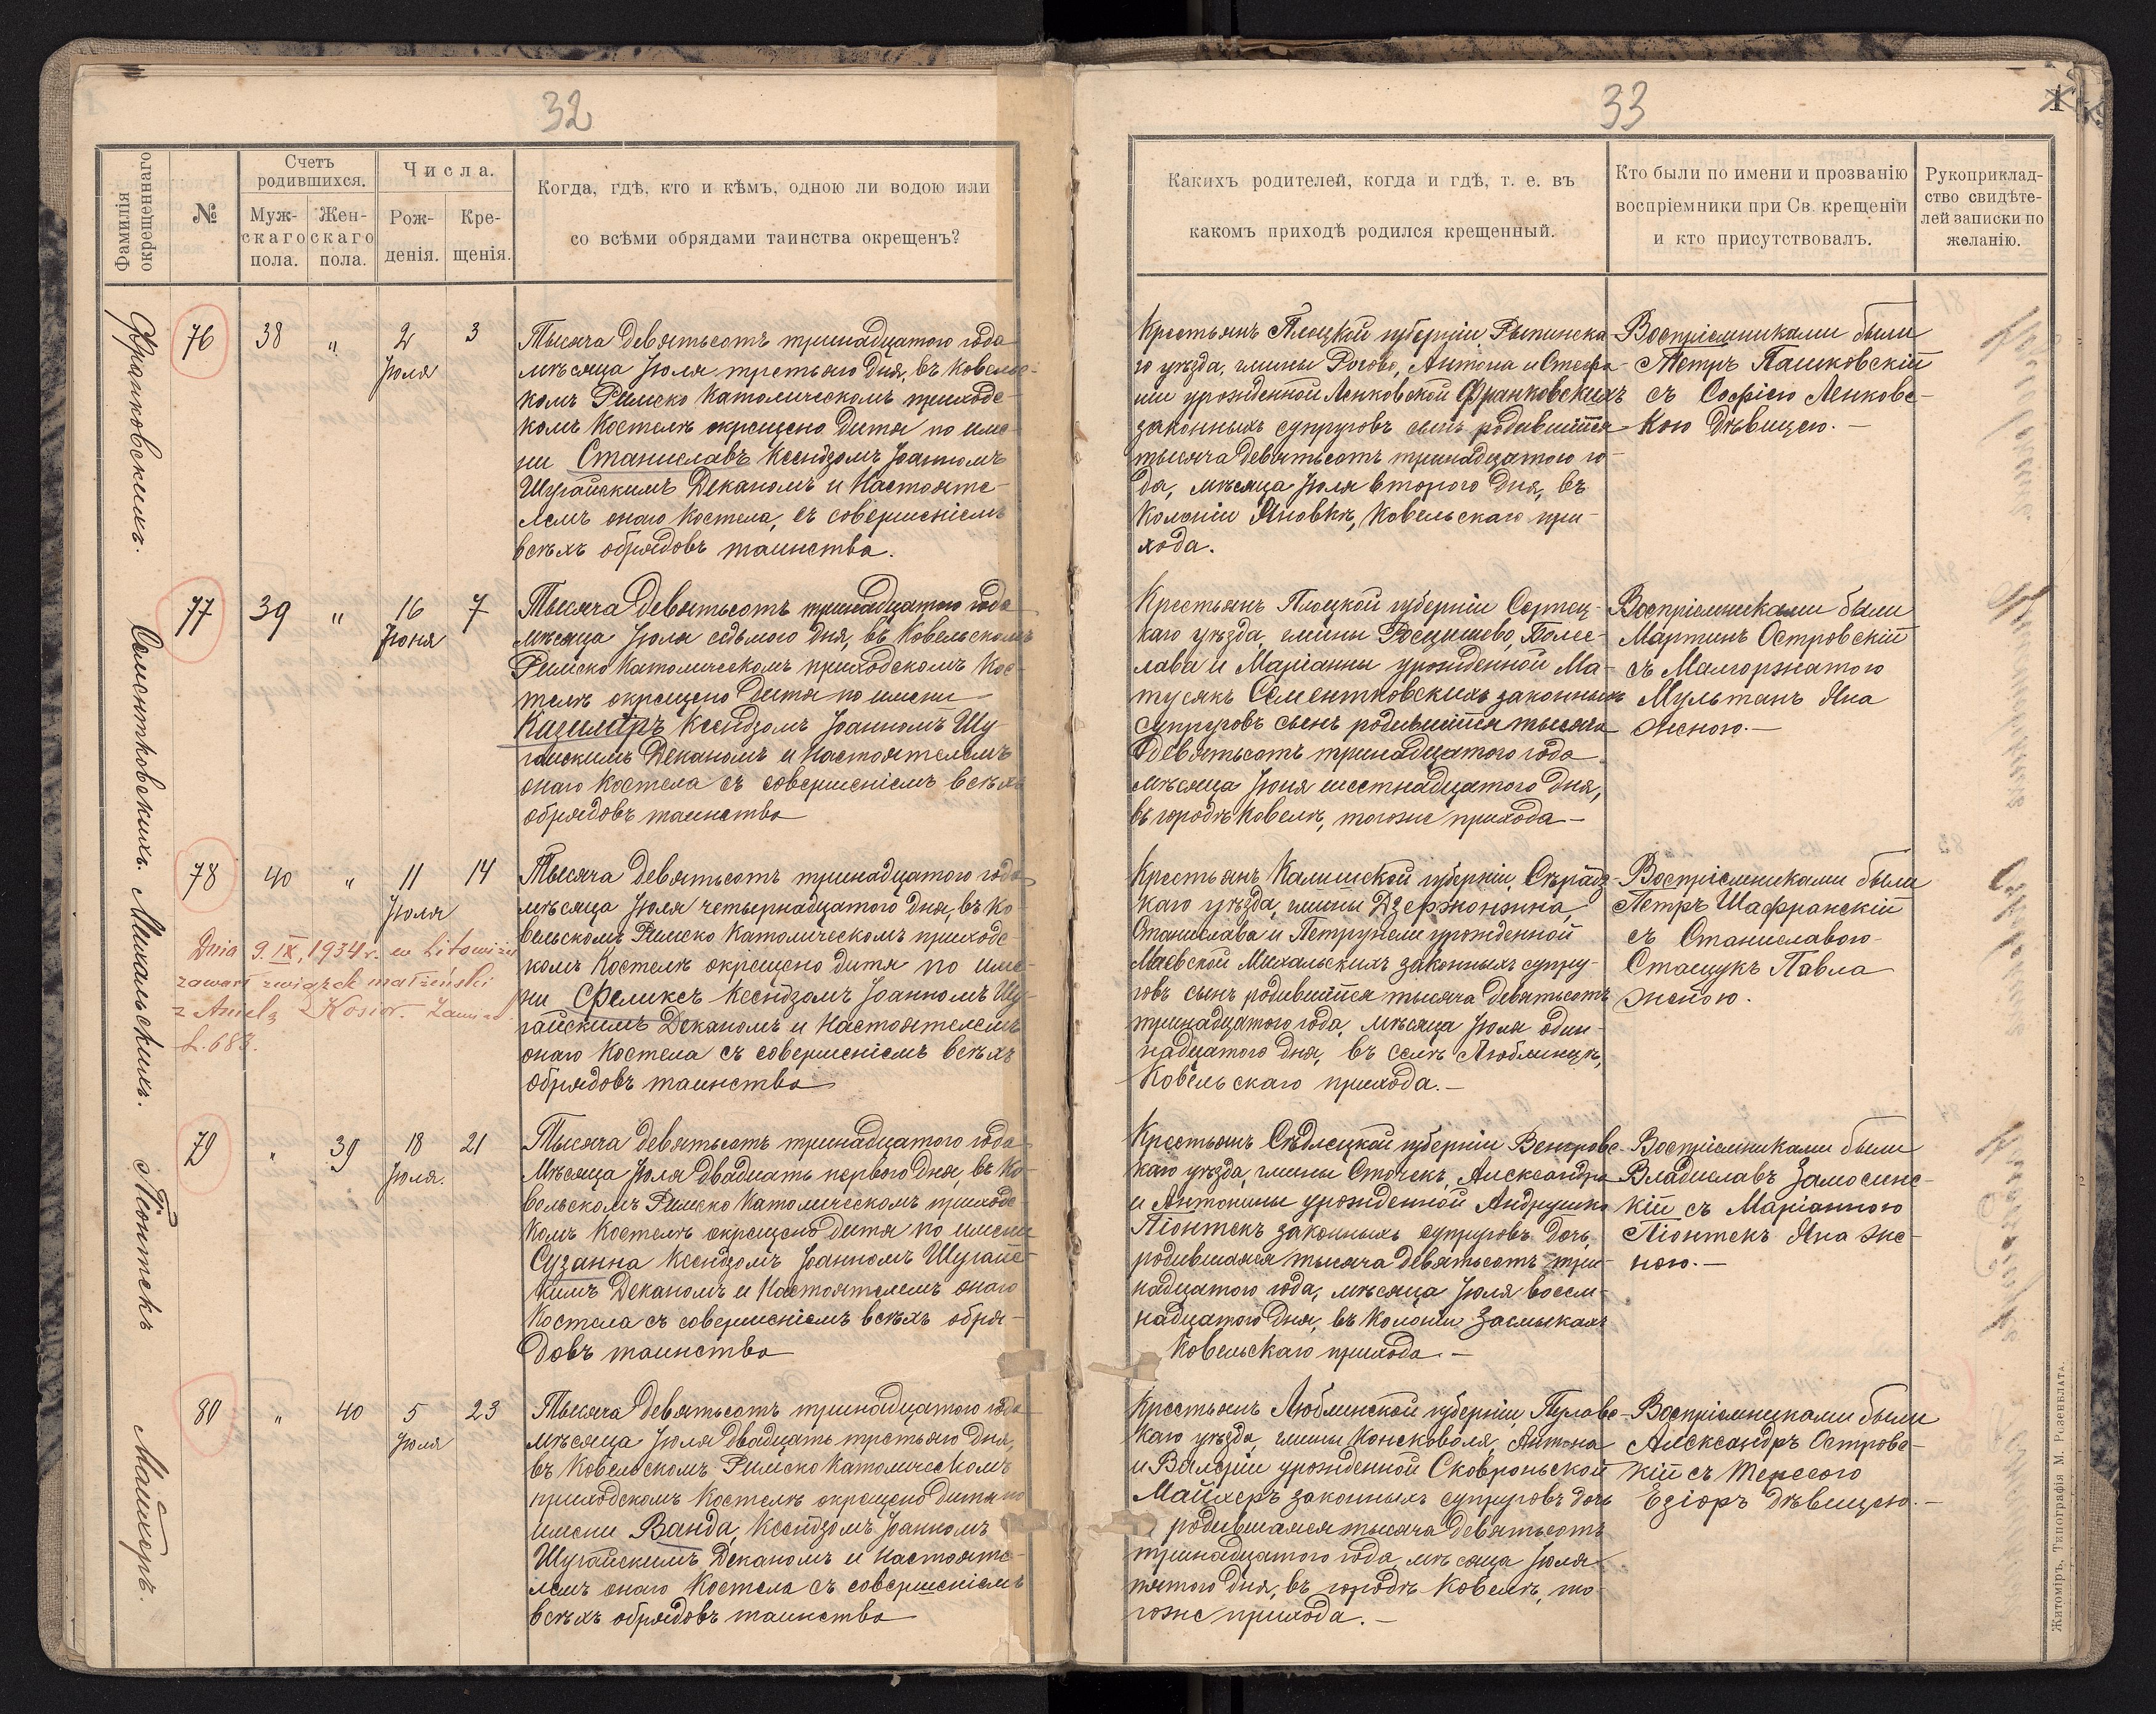 32
Фамилія окрещеннаго
№
Счетъ родившихся.
Муж-скаго пола.
Жен-скаго пола.
Числа.
Рож-денія.
Кре-щенія.
Когда, гдѣ, кто и кѣмъ, одною ли водою или
со всѣми обрядами таинства окрещенъ?
Франковскихъ.
76
38
"
2
Іюля
3
Тысяча девятьсотъ тринадцатого года
мѣсяца Іюля третьяго дня, въ Ковельс-
комъ Римско Католическомъ приходс-
комъ Костелѣ окрещено дитя по име-
ни Станиславъ Ксендзомъ Іоанномъ
Шугайскимъ Деканомъ и Настояте-
лемъ онаго Костела, съ совершеніемъ
всѣхъ обрядовъ таинства.
Сементковскихъ.
77
39
"
16
Іюня
7
Тысяча девятьсотъ тринадцатого года
мѣсяца Іюля седьмого дня, въ Ковельскомъ
Римско Католическомъ приходскомъ Кос-
телѣ окрещено дитя по имени
Казиміръ Ксендзомъ Іоанномъ Шу-
гайскимъ Деканомъ и Настоятелемъ
онаго Костела съ совершеніемъ всѣхъ
обрядовъ таинства
Михальскихъ.
78
40
"
11
Іюля
14
Dnia 9.IX.1934 r. w Litowiżu
zawarł związek małżeński
z Anielą Kosior. Zawiad.
L. 683.
Тысяча девятьсотъ тринадцатого года
мѣсяца Іюля четырнадцатого дня, въ Ко-
вельскомъ Римско Католическомъ приходс-
комъ Костелѣ окрещено дитя по име-
ни Феликсъ Ксендзомъ Іоанномъ Шу-
гайскимъ Деканомъ и Настоятелемъ
онаго Костела съ совершеніемъ всѣхъ
обрядовъ таинства
Піонтекъ
79
"
39
18
Іюля.
21
Тысяча девятьсотъ тринадцатого года
Мѣсяца Іюля двадцать перваго дня, въ Ко-
вельскомъ Римско Католическомъ приходс-
комъ Костелѣ окрещено дитя по имени
Сузанна Ксендзомъ Іоанномъ Шугайс-
кимъ Деканомъ и Настоятелемъ онаго
Костела съ совершеніемъ всѣхъ обря-
довъ таинства
Майхеръ.
80
"
40
5
Іюля
23
Тысяча девятьсотъ тринадцатого года
мѣсяца Іюля двадцать третьяго дня,
въ Ковельскомъ Римско Католическомъ
приходскомъ Костелѣ окрещено дитя по
имени Ванда, Ксендзомъ Іоанномъ
Шугайскимъ Деканомъ и Настояте-
лемъ онаго Костела съ совершеніемъ
всѣхъ обрядовъ таинства
33
Какихъ родителей, когда и гдѣ, т. е. въ
какомъ приходѣ родился крещенный.
Кто были по имени и прозванію
воспріемники при Св. крещеніи
и кто присутствовалъ.
Рукоприклад-
ство свидѣте-
лей записки по
желанію.
Крестьянъ Плоцкой губерніи Рыпинска-
го уѣзда, гмины Рогово, Антона и Стефа-
ніи урожденной Ленковской Франковскихъ
законныхъ супруговъ сынъ родившійся
тысяча девятьсотъ тринадцатого го-
да, мѣсяца Іюля второго дня, въ
Колоніи Яновкѣ, Ковельскаго при-
хода.
Воспріемниками были
Петръ Пашковскій
съ Софіею Ленковс-
кою дѣвицею.—
Крестьянъ Плоцкой губерніи Серпец-
каго уѣзда, гмины Росцишево, Болес-
лава и Маріанны урожденной Ма-
тусякъ Сементковскихъ законныхъ
супруговъ сынъ родившійся тысяча
девятьсотъ тринадцатого года
мѣсяца Іюня шестнадцатого дня,
въ городѣ Ковелѣ, тогоже прихода—
Воспріемниками были
Мартинъ Островскій
съ Малгоржатою
Мультанъ Яна
женою.—
Крестьянъ Калишской губерніи, Сѣрадз-
каго уѣзда, гмины Дзержонзна,
Станислава и Петрунели урожденной
Маевской Михальскихъ законныхъ супру-
говъ сынъ родившійся тысяча девятьсотъ
тринадцатого года, мѣсяца Іюля один-
надцатого дня, въ селѣ Люблинцѣ,
Ковельскаго прихода.—
Воспріемниками были
Петръ Шафранскій
съ Станиславою
Стащукъ Павла
женою.
Крестьянъ Сѣдлецкой губерніи Венгровс-
каго уѣзда, гмины Сточекъ, Александра
и Антонины урожденной Андрушко
Піонтекъ законныхъ супруговъ дочь,
родившаяся тысяча девятьсотъ три-
надцатого года, мѣсяца Іюля восем-
надцатого дня, въ Колоніи Засмыкахъ
Ковельскаго прихода—
Воспріемниками были
Владиславъ Замосинс-
кій съ Маріанною
Піонтекъ Яна же-
ною.—
Крестьянъ Люблинской губерніи, Пулавс-
каго уѣзда, гмины Консковоля, Антона
и Валеріи урожденной Сковроньской
Майхеръ законныхъ супруговъ дочь
родившаяся тысяча девятьсотъ
тринадцатого года, мѣсяца Іюля
пятого дня, въ городѣ Ковелѣ, то-
гоже прихода.—
Воспріемниками были
Александръ Островс-
кій съ Тересою
Езіоръ дѣвицею.—
Житоміръ, Типографія М. Розенблата.